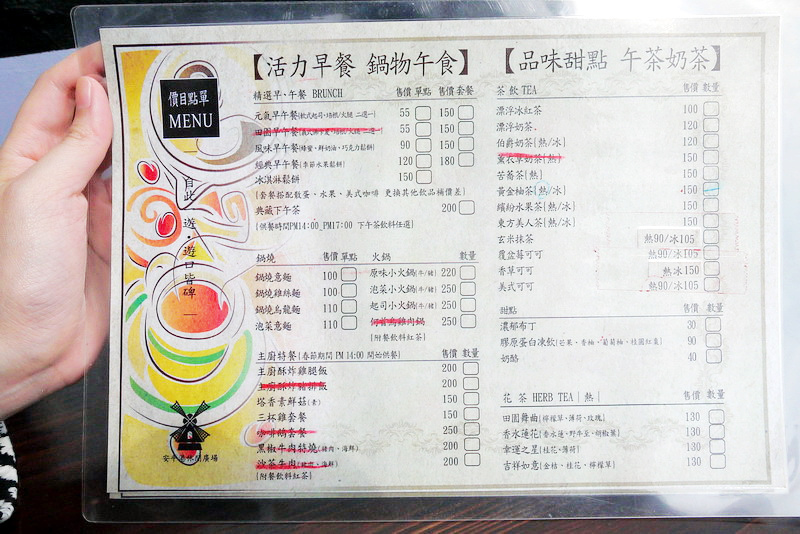 價目點單
MENU
自此一遊·遊口皆碑
【活力早餐 鍋物午食】
精選早、午餐 BRUNCH 售價 單點 售價 套餐
元氣早午餐(軟式起司、培根/火腿 二選一) 55 150
田園早午餐 55 150
風味早午餐(蜂蜜、鮮奶油、巧克力鬆餅) 90 150
經典早午餐(季節水果鬆餅) 120 180
冰淇淋鬆餅 150
(套餐搭配散蛋、水果、美式咖啡 更換其他飲品補價差)
典藏下午茶 200
(供餐時間PM14:00_PM17:00 下午茶飲料任選)
鍋燒 售價 單點
鍋燒意麵 100
鍋燒雞絲麵 100
鍋燒烏龍麵 110
泡菜意麵 110
火鍋 售價 數量
原味小火鍋(牛/豬) 220
泡菜小火鍋(牛/豬) 250
起司小火鍋(牛/豬) 250
何首烏雞肉鍋 250
(附餐飲料紅茶)
主廚特餐(春節期間 PM 14:00 開始供餐) 售價 數量
主廚酥炸雞腿飯 200
主廚酥炸豬排飯 200
塔香素鮮菇(素) 150
三杯雞套餐 150
咖哩鍋套餐 250
黑椒牛肉特燒(豬肉、海鮮) 200
沙茶牛肉(豬肉、海鮮) 200
(附餐飲料紅茶)
【品味甜點 午茶奶茶】
茶飲 TEA 售價 數量
漂浮冰紅茶 100
漂浮奶茶 120
伯爵奶茶[熱/冰] 120
薰衣草奶茶[熱] 150
苦蕎茶[熱] 150
黃金柚茶[熱/冰] 150
繽紛水果茶[熱/冰] 150
東方美人茶[熱/冰] 150
玄米抹茶 熱90/冰105
覆盆莓可可 熱90/冰105
香草可可 熱冰150
美式可可 熱90/冰105
甜點 售價 數量
濃郁布丁 30
膠原蛋白凍飲(芒果、香柚、葡萄柚、桂圓紅棗) 90
奶酪 40
花 茶 HERB TEA[ 熱 ] 售價 數量
田園舞曲(檸檬草、薄荷、玫瑰) 130
香水蓮花(香水蓮、野牛至、胡椒葉) 130
幸運之星(桂花、薄荷) 130
吉祥如意(金桔、桂花、檸檬草) 130